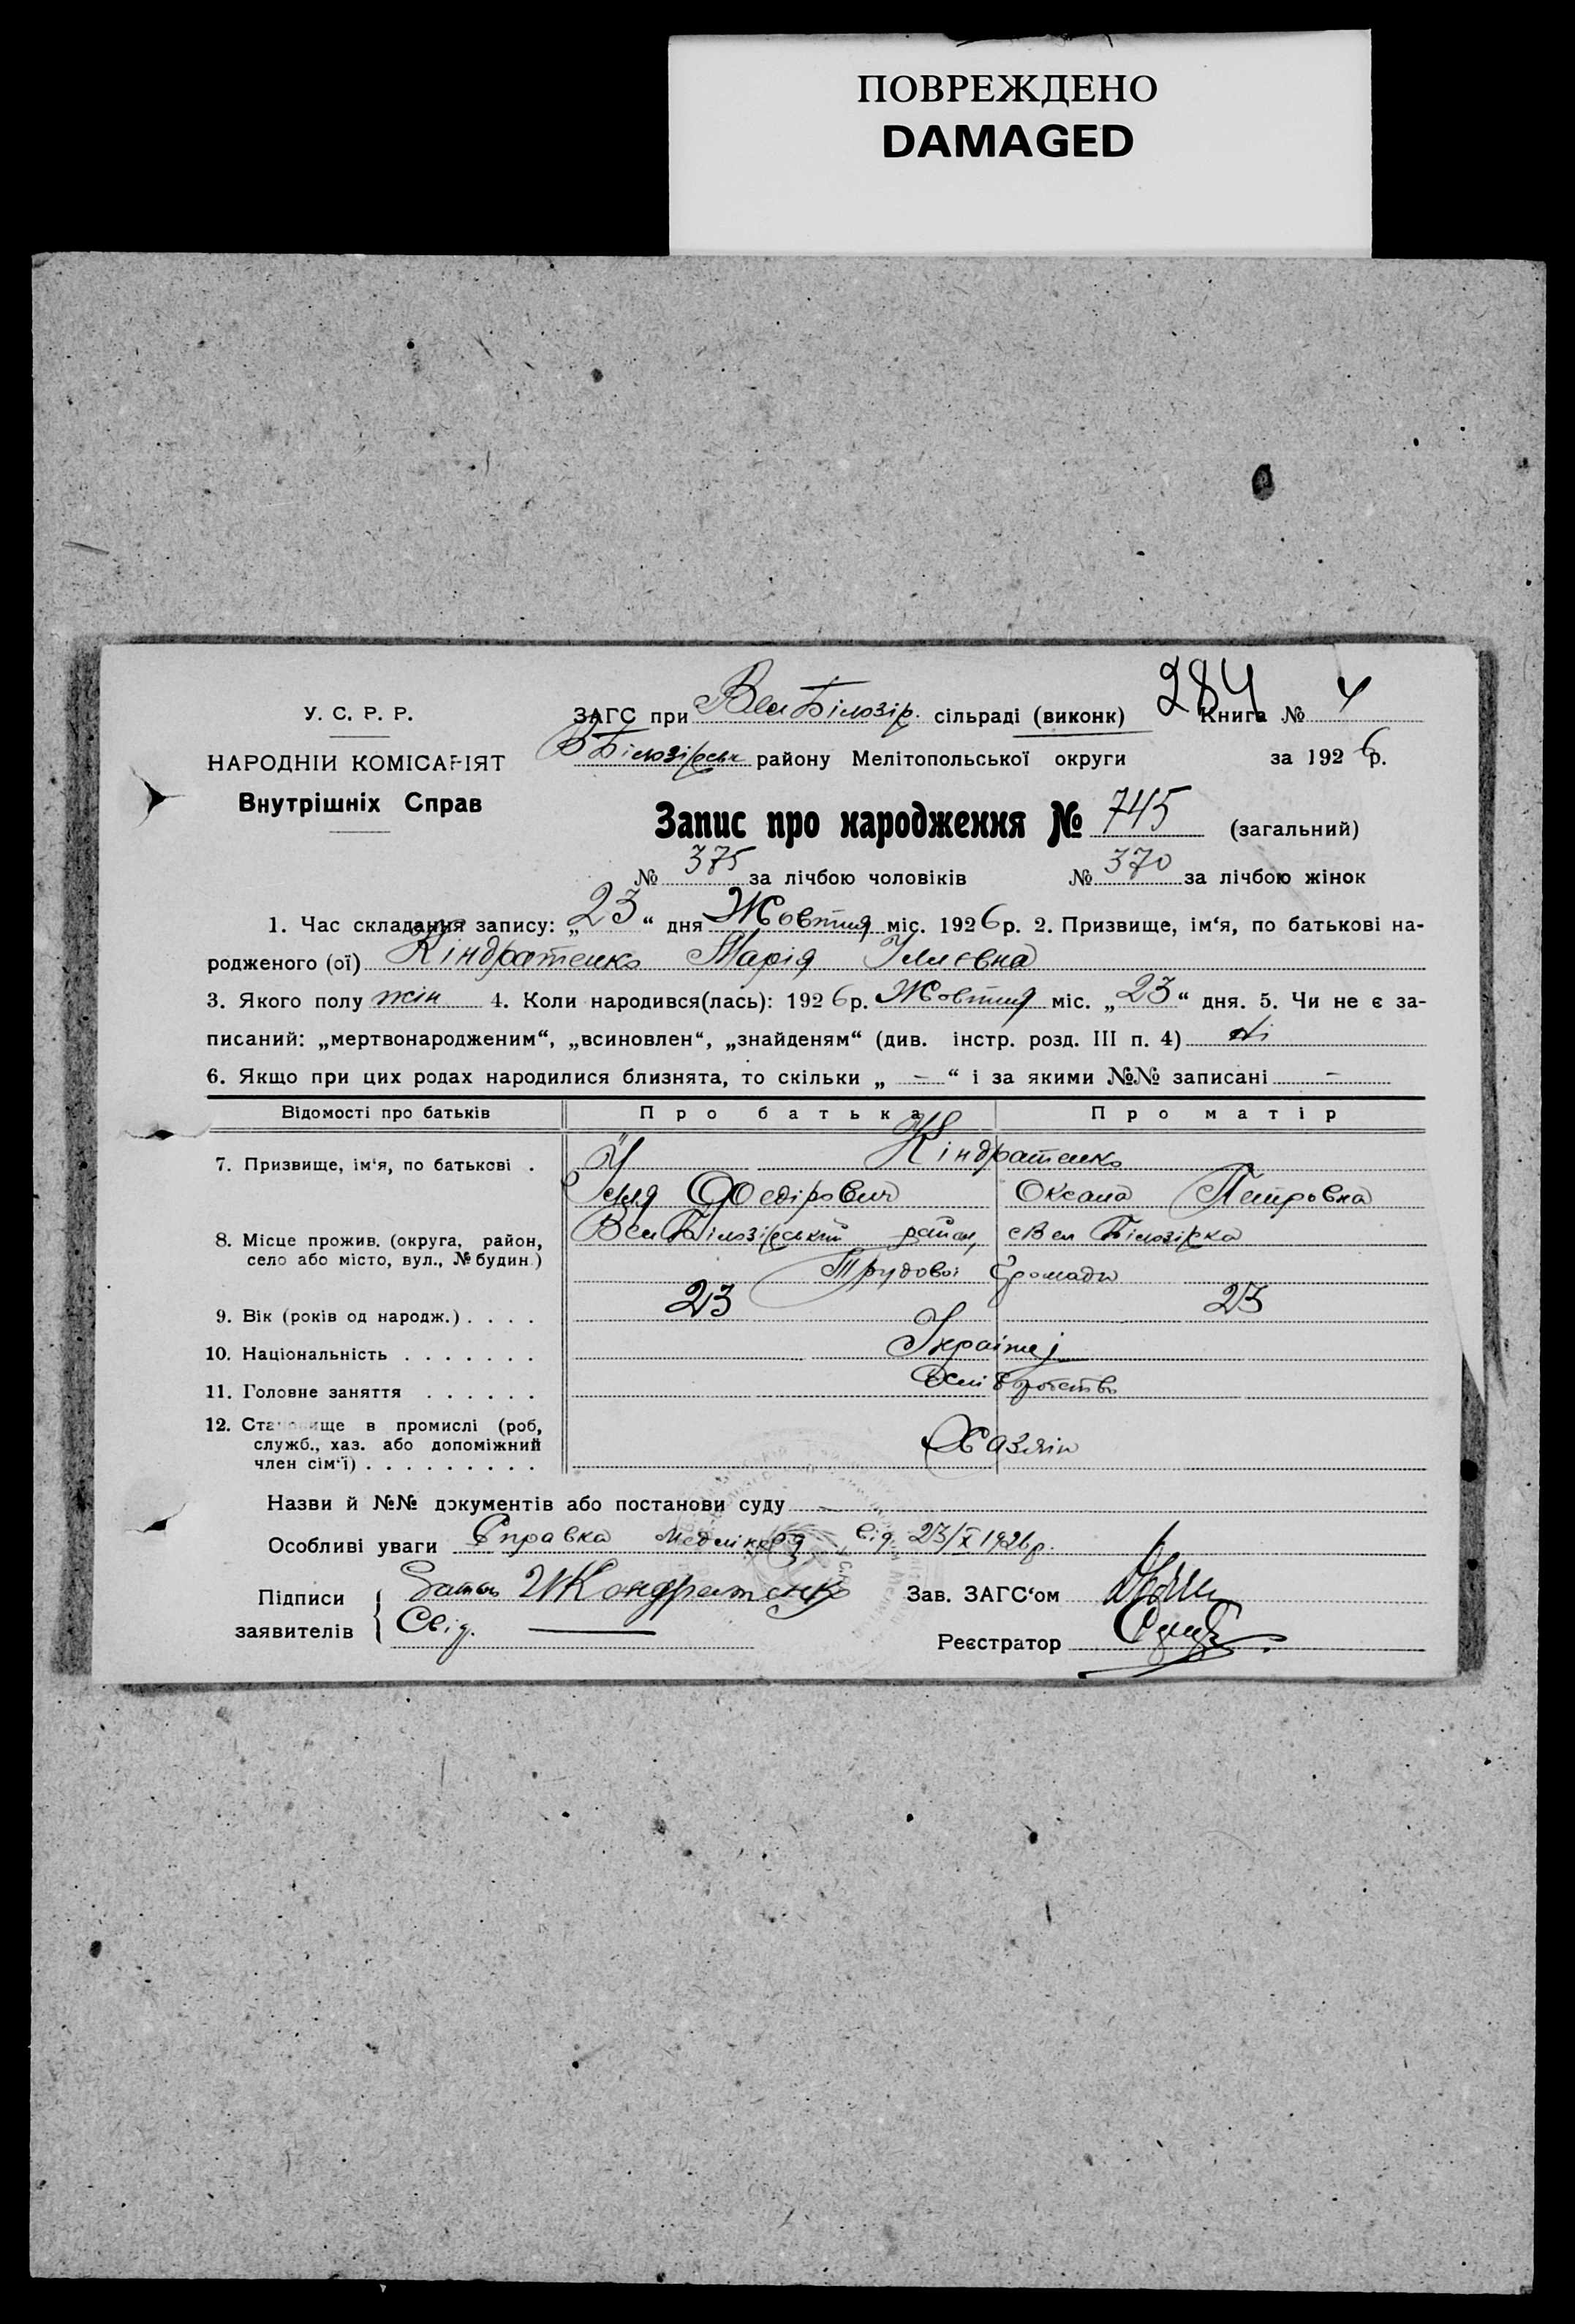 ПОВРЕЖДЕНО
DAMAGED
284
У. С. Р. Р.
ЗАГС при Вел Білозір. сільраді (виконк) Книга № 4
НАРОДНІЙ КОМІСАРІЯТ
В Білозірськ району Мелітопольської округи за 1926 р.
Внутрішніх Справ
Запис про народження № 745 (загальний)
№ 375 за лічбою чоловіків № 370 за лічбою жінок
1. Час складання запису: „23“ дня Жовтня міс. 1926 р. 2. Призвище, ім‘я, по батькові на-
родженого (ої) Кіндратенко Марія Ілиєвна
3. Якого полу жін 4. Коли народився(лась): 1926 р. Жовтня міс. „23“ дня. 5. Чи не є за-
писаний: „мертвонародженим“, „всиновлен“, „знайденям“ (див. інстр. розд. III п. 4) ні
6. Якщо при цих родах народилися близнята, то скільки „ – “ і за якими №№ записані –
Відомості про батьків Про батька Про матір
7. Призвище, ім‘я, по батькові . Кіндратенко
Ілля Федірович Оксана Петровна
8. Місце прожив. (округа, район, село або місто, вул., № будин.) Вел Білозірський район, с Вел Білозірка
Трудової Громади
9. Вік (років од народж.) . . . . 23 23
10. Національність . . . . . . . Україн
11. Головне заняття . . . . . .
12. Становище в промислі (роб,
служб., хаз. або допоміжний
член сім‘ї) . . . . . . . . . Хазяін
Назви й №№ документів або постанови суду –
Особливі уваги Справка від 23/X 1926 р.
Підписи заявителів { Кондратенко Зав. ЗАГС‘ом
Свід. — Реєстратор